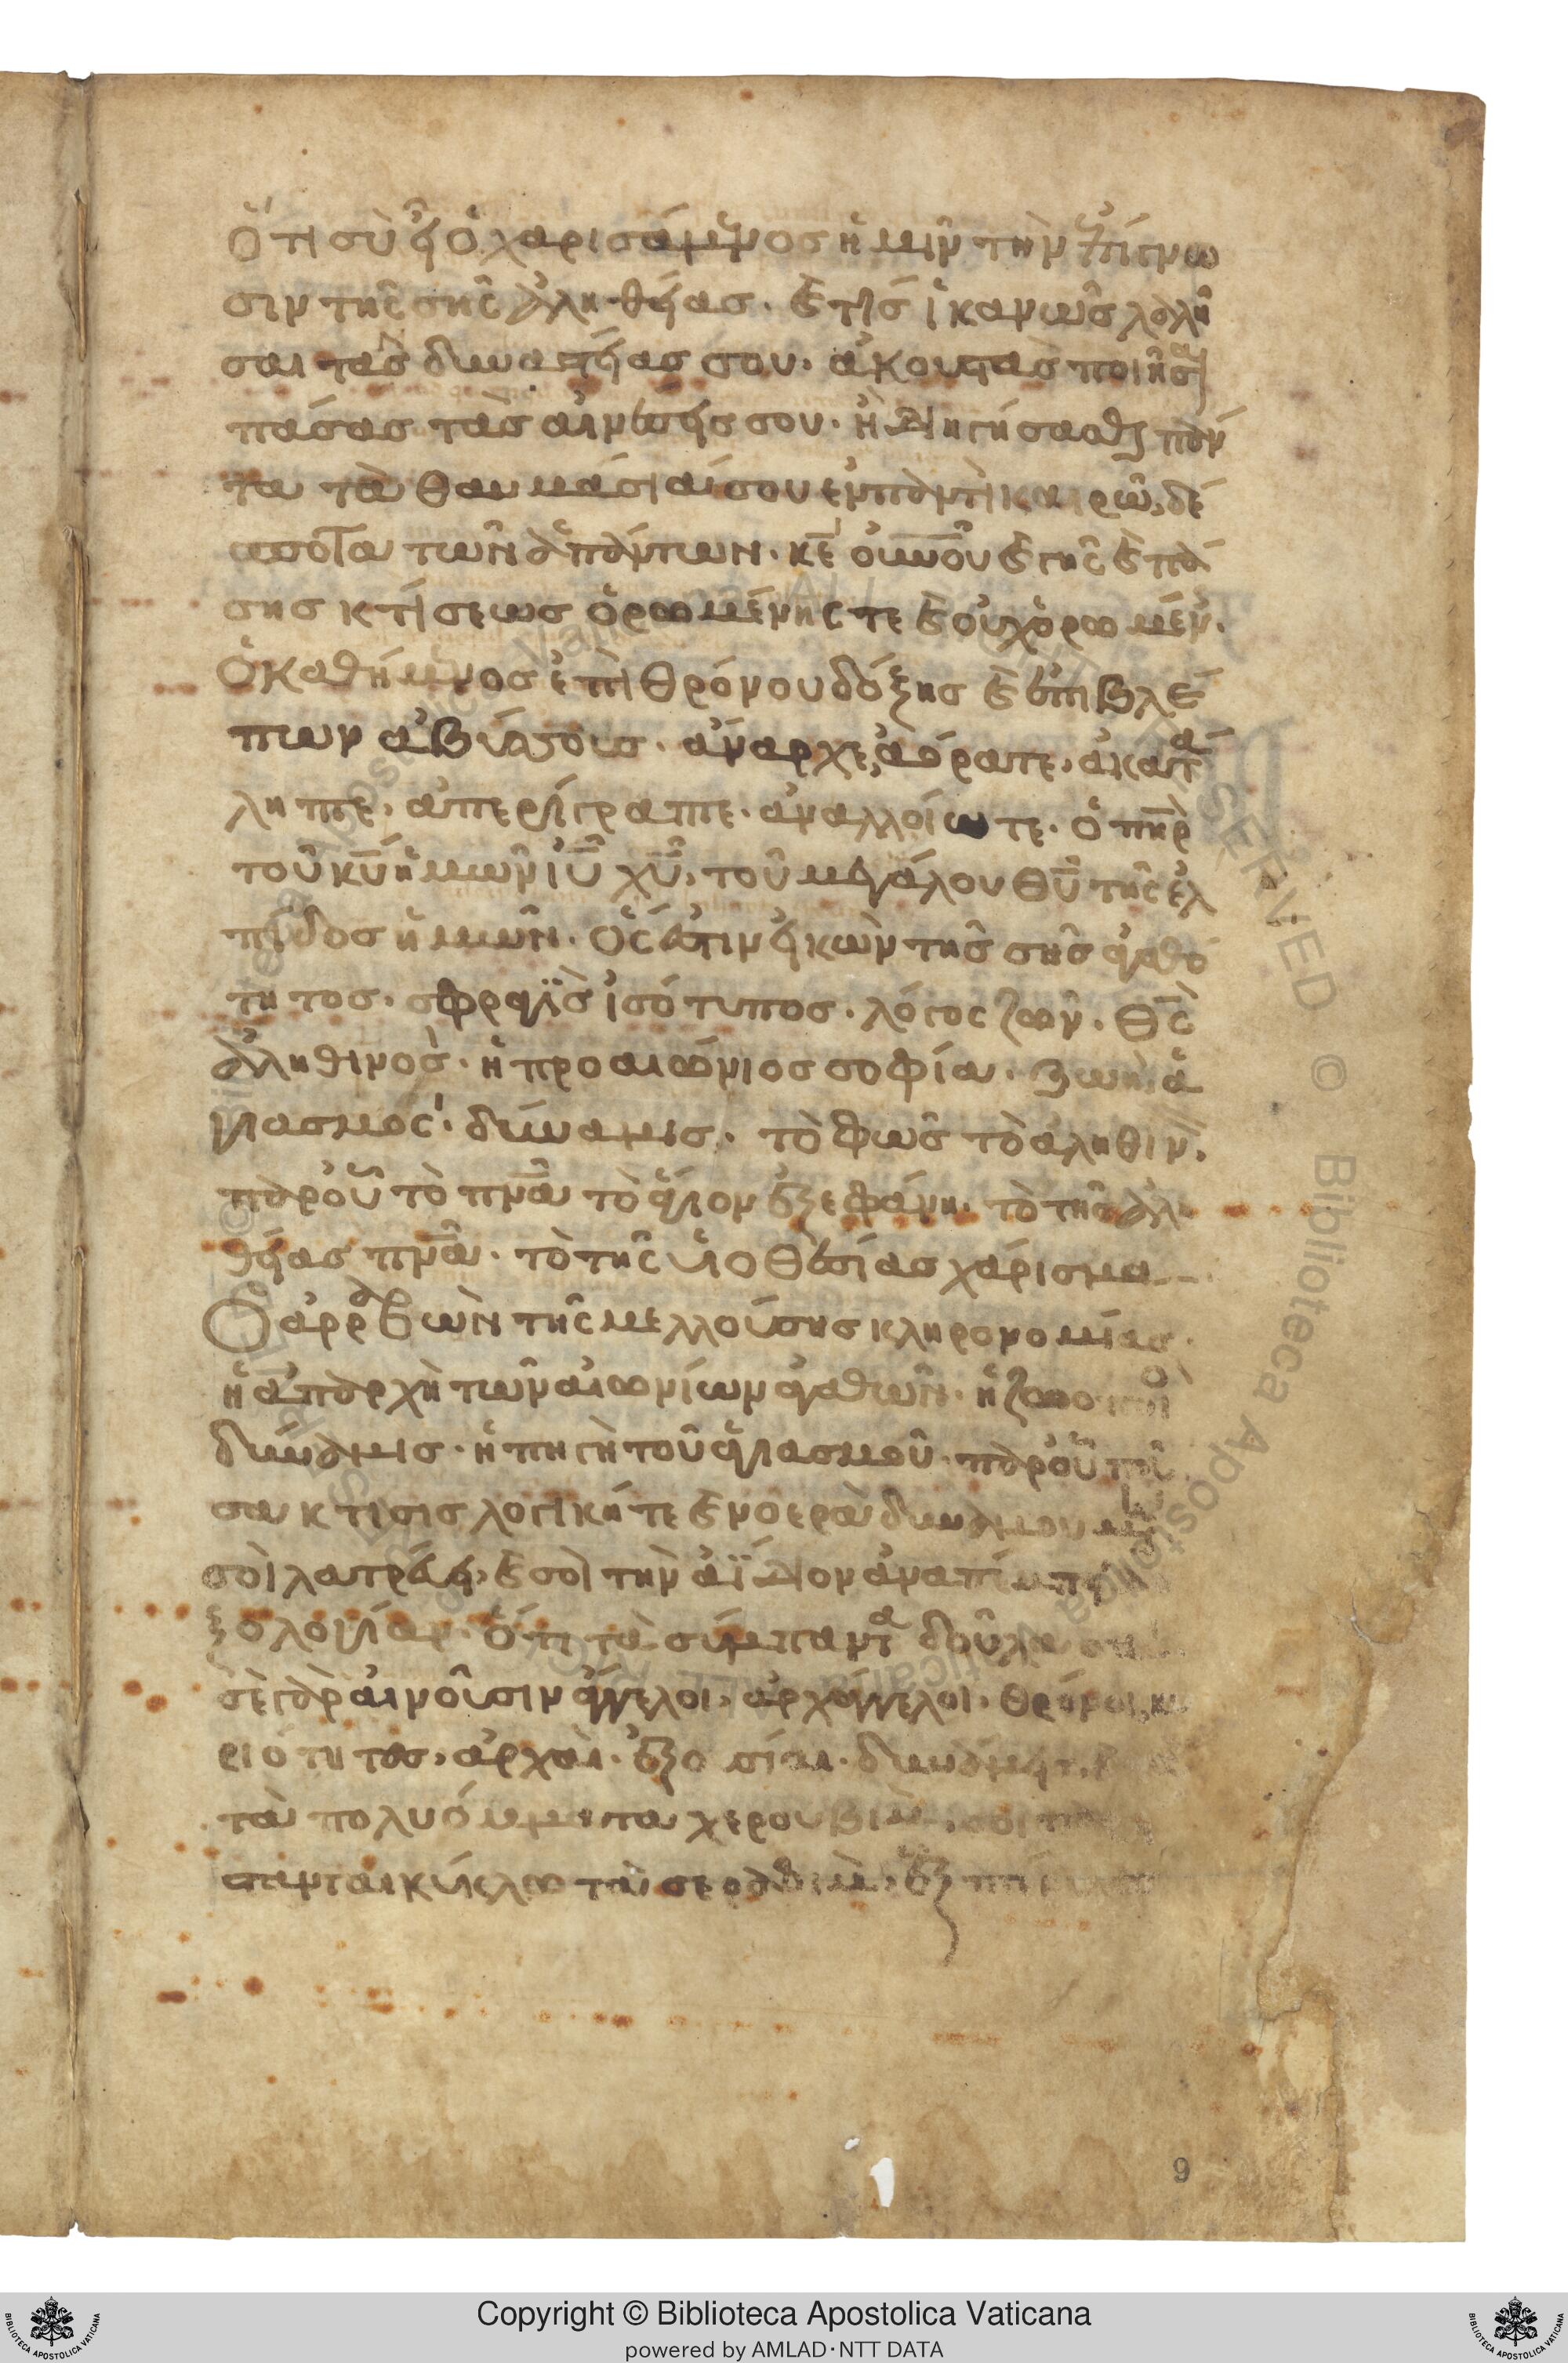 Ὅτι σὺ εἶ ὁ χαρισάμενος ἡμῖν τὴν ἐπίγνω
σιν τῆς σῆς ἀληθείας. καὶ τίς ἱκανῶς λαλῆ
σαι τὰς δυναστείας σου. ἀκουστὰς ποιῆσαι
πάσας τὰς αἰνέσεις σου. ἢ διηγήσασθαι πάν
τα τὰ θαυμάσιά σου ἐν παντὶ καιρῷ, δέ
σποτα τῶν ἁπάντων. κε οὐνοῦ καὶ γῆς καὶ πά
σης κτίσεως ὁρωμένης τε καὶ οὐχ ὁρωμέν.
ὁ καθήμενος ἐπὶ θρόνου δόξης καὶ ἐπιβλέ
πων ἀβύσσους. ἄναρχε, ἀόρατε, ἀκατά
ληπτε, ἀπερίγραπτε. ἀναλλοίωτε. ὁ πηρ
τοῦ κυ ἡμῶν ιυ χυ, τοῦ μεγάλου θυ τῆς ἐλ
πίδος ἡμῶν. ὅς ἐστιν εἰκὼν τῆς σῆς ἀγαθό
τητος. σφραγὶς ἰσότυπος. λόγος ζῶν. θς
ἀληθινός. ἡ προαιώνιος σοφία. ζωὴ. ἁ
γιασμός. δύναμις. τὸ φῶς τὸ ἀληθιν.
παρ' οὗ τὸ πνα τὸ ἅγιον ἐξεφάνη. τὸ τῆς ἀλη
θείας πνα. τὸ τῆς υἱοθεσίας χάρισμα
Ὁ ἀρραβὼν τῆς μελλούσης κληρονομίας.
ἡ ἀπαρχὴ τῶν αἰωνίων ἀγαθῶν. ἡ ζωοποιὸς
δύναμις. ἡ πηγὴ τοῦ ἁγιασμοῦ. παρ' οὗ πᾶ
σα κτίσις λογική τε καὶ νοερὰ δυναμουμένη
σοὶ λατρεύει, καὶ σοὶ τὴν ἀΐδιον ἀναπέμπει
ξολογίαν. ὅτι τὰ σύμπαντα δοῦλα σά
σὲ γὰρ αἰνοῦσιν ἄγγελοι, ἀρχάγγελοι. θρόνοι, κυ
ριότητες, ἀρχαὶ. ἐξουσίαι. δυνάμεις.
τὰ πολυόμματα χερουβίμ, σοὶ
στανται κύκλῳ τὰ σεραφίμ. ἓξ
9
SERVED © Biblioteca Apostolica
Copyright © Biblioteca Apostolica Vaticana
powered by AMLAD·NTT DATA